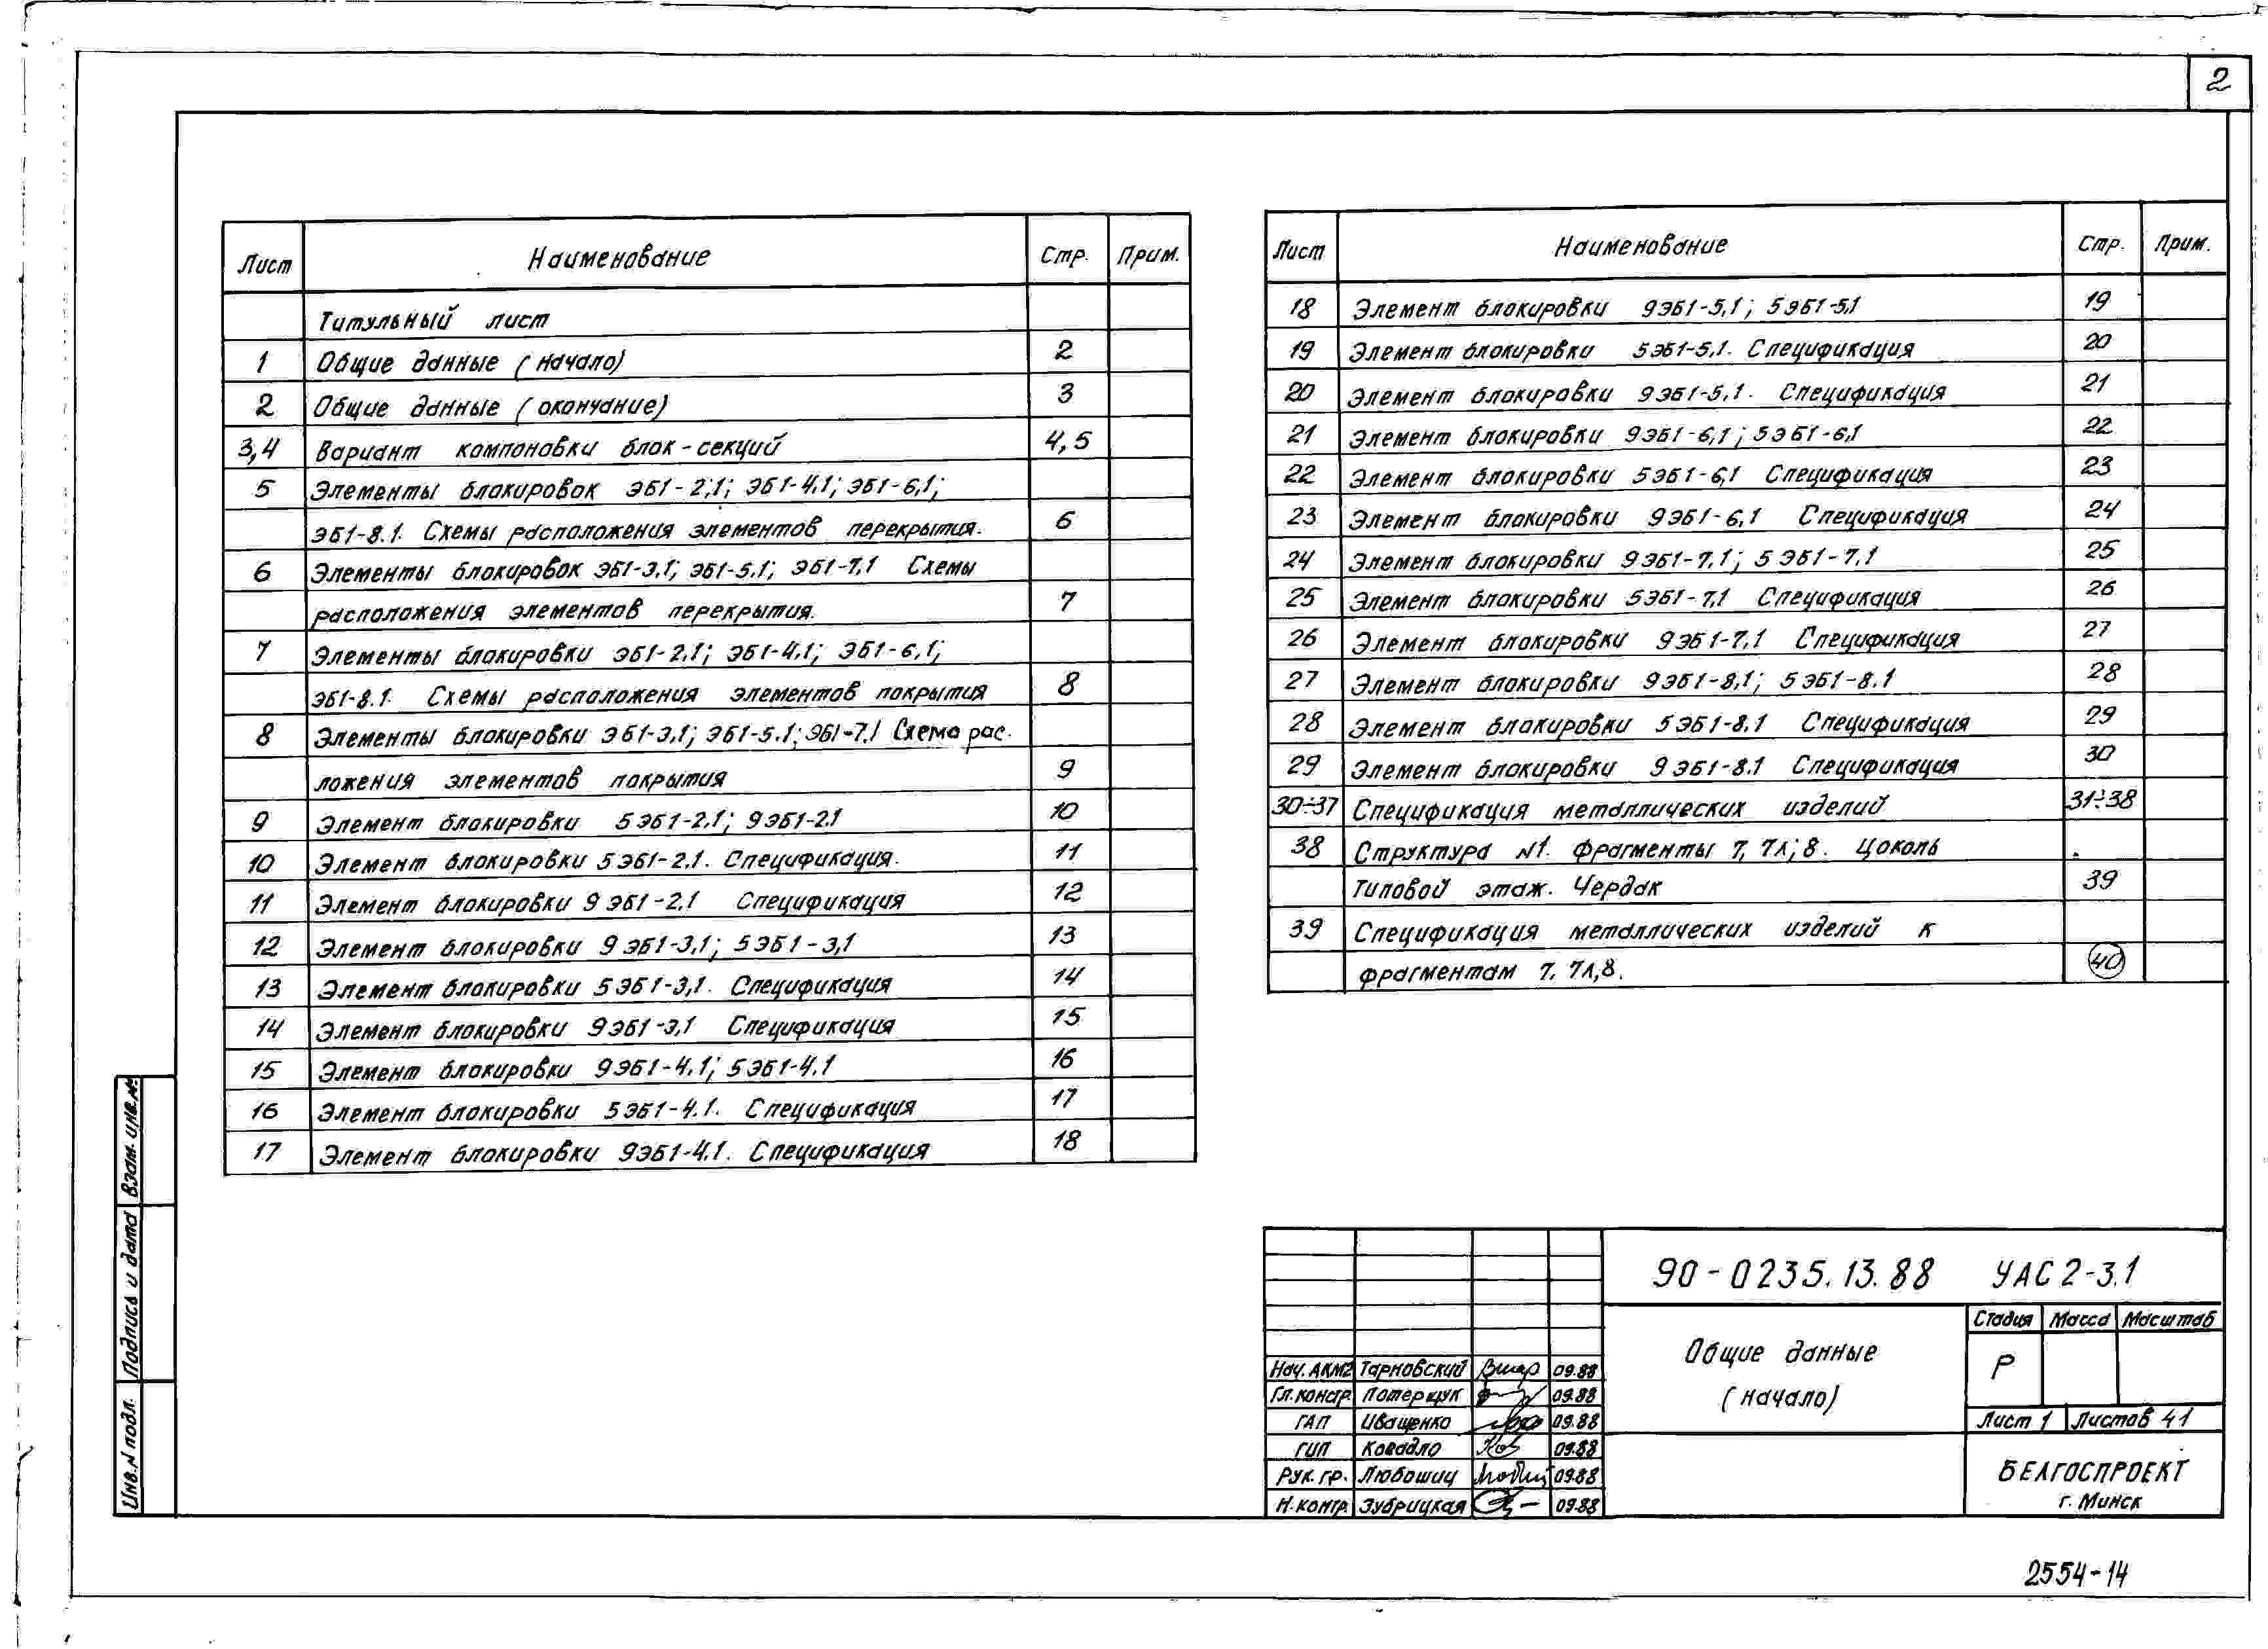 2
Лист Наименование Стр. Прим.
Титульный лист
1 Общие данные (начало) 2
2 Общие данные (окончание) 3
3,4 Вариант компоновки блок-секций 4,5
5 Элементы блокировок ЭБ1-2,1; ЭБ1-4,1; ЭБ1-6,1;
ЭБ1-8.1. Схемы расположения элементов перекрытия. 6
6 Элементы блокировок ЭБ1-3,1; ЭБ1-5,1; ЭБ1-7,1 Схемы
расположения элементов перекрытия. 7
7 Элементы блокировки ЭБ1-2,1; ЭБ1-4,1; ЭБ1-6,1;
ЭБ1-8.1. Схемы расположения элементов покрытия 8
8 Элементы блокировки ЭБ1-3,1; ЭБ1-5.1; ЭБ1-7.1 Схема рас.
ложения элементов покрытия 9
9 Элемент блокировки 5ЭБ1-2,1; 9ЭБ1-2.1 10
10 Элемент блокировки 5ЭБ1-2.1. Спецификация. 11
11 Элемент блокировки 9ЭБ1-2.1 Спецификация 12
12 Элемент блокировки 9ЭБ1-3,1; 5ЭБ1-3,1 13
13 Элемент блокировки 5ЭБ1-3,1. Спецификация 14
14 Элемент блокировки 9ЭБ1-3,1 Спецификация 15
15 Элемент блокировки 9ЭБ1-4.1; 5ЭБ1-4.1 16
16 Элемент блокировки 5ЭБ1-4.1. Спецификация 17
17 Элемент блокировки 9ЭБ1-4.1. Спецификация 18
Лист Наименование Стр. Прим.
18 Элемент блокировки 9ЭБ1-5,1; 5ЭБ1-5,1 19
19 Элемент блокировки 5ЭБ1-5,1. Спецификация 20
20 Элемент блокировки 9ЭБ1-5,1. Спецификация 21
21 Элемент блокировки 9ЭБ1-6,1; 5ЭБ1-6,1 22
22 Элемент блокировки 5ЭБ1-6,1 Спецификация 23
23 Элемент блокировки 9ЭБ1-6,1 Спецификация 24
24 Элемент блокировки 9ЭБ1-7,1; 5ЭБ1-7,1 25
25 Элемент блокировки 5ЭБ1-7,1 Спецификация 26
26 Элемент блокировки 9ЭБ1-7.1 Спецификация 27
27 Элемент блокировки 9ЭБ1-8,1; 5ЭБ1-8.1 28
28 Элемент блокировки 5ЭБ1-8.1 Спецификация 29
29 Элемент блокировки 9ЭБ1-8.1 Спецификация 30
30÷37 Спецификация металлических изделий 31÷38
38 Структура №1. Фрагменты 7, 7л; 8. Цоколь
Типовой этаж. Чердак 39
39 Спецификация металлических изделий к
фрагментам 7. 7л,8. 40
Взам. инв.№
Подпись и дата
Инв.N подл.
90-0235.13.88 УАС 2-3.1
Общие данные
(начало)
Стадия Масса Масштаб
Р
Лист 1 Листов 41
Нач. АКМ2 Тарновский 09.88
Гл.констр. Потерщук 09.88
ГАП Иващенко 09.88
ГИП Ковадло 09.88
Рук. гр. Любошиц 09.88
Н.контр. Зубрицкая 09.88
БЕЛГОСПРОЕКТ
г. Минск
2554-14